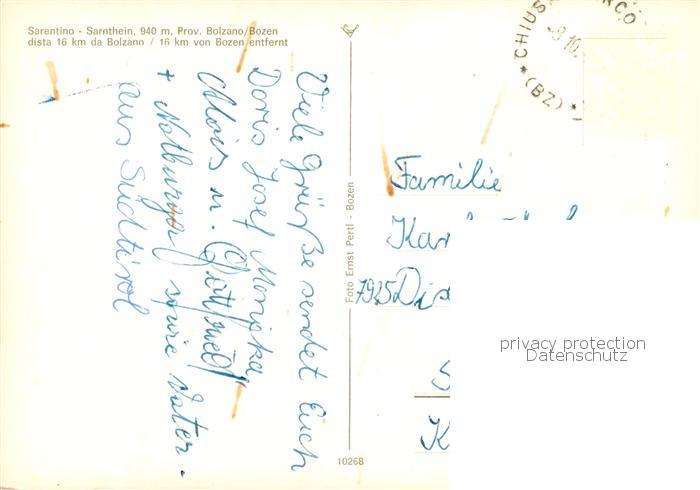 Sarentino - Sarnthein, 940 m, Prov. Bolzano/Bozen
dista 16 km da Bolzano / 16 km von Bozen entfernt
Viele Grüße sendet Euch
Doris Josef Monika
Alois u. Gottfried
+ Notburga sowie Vater.
aus Südtirol
Foto Ernst Pertl - Bozen
10268
CHIUSA
(BZ)
Familie
Kar
7925 Dis
K
privacy protection
Datenschutz